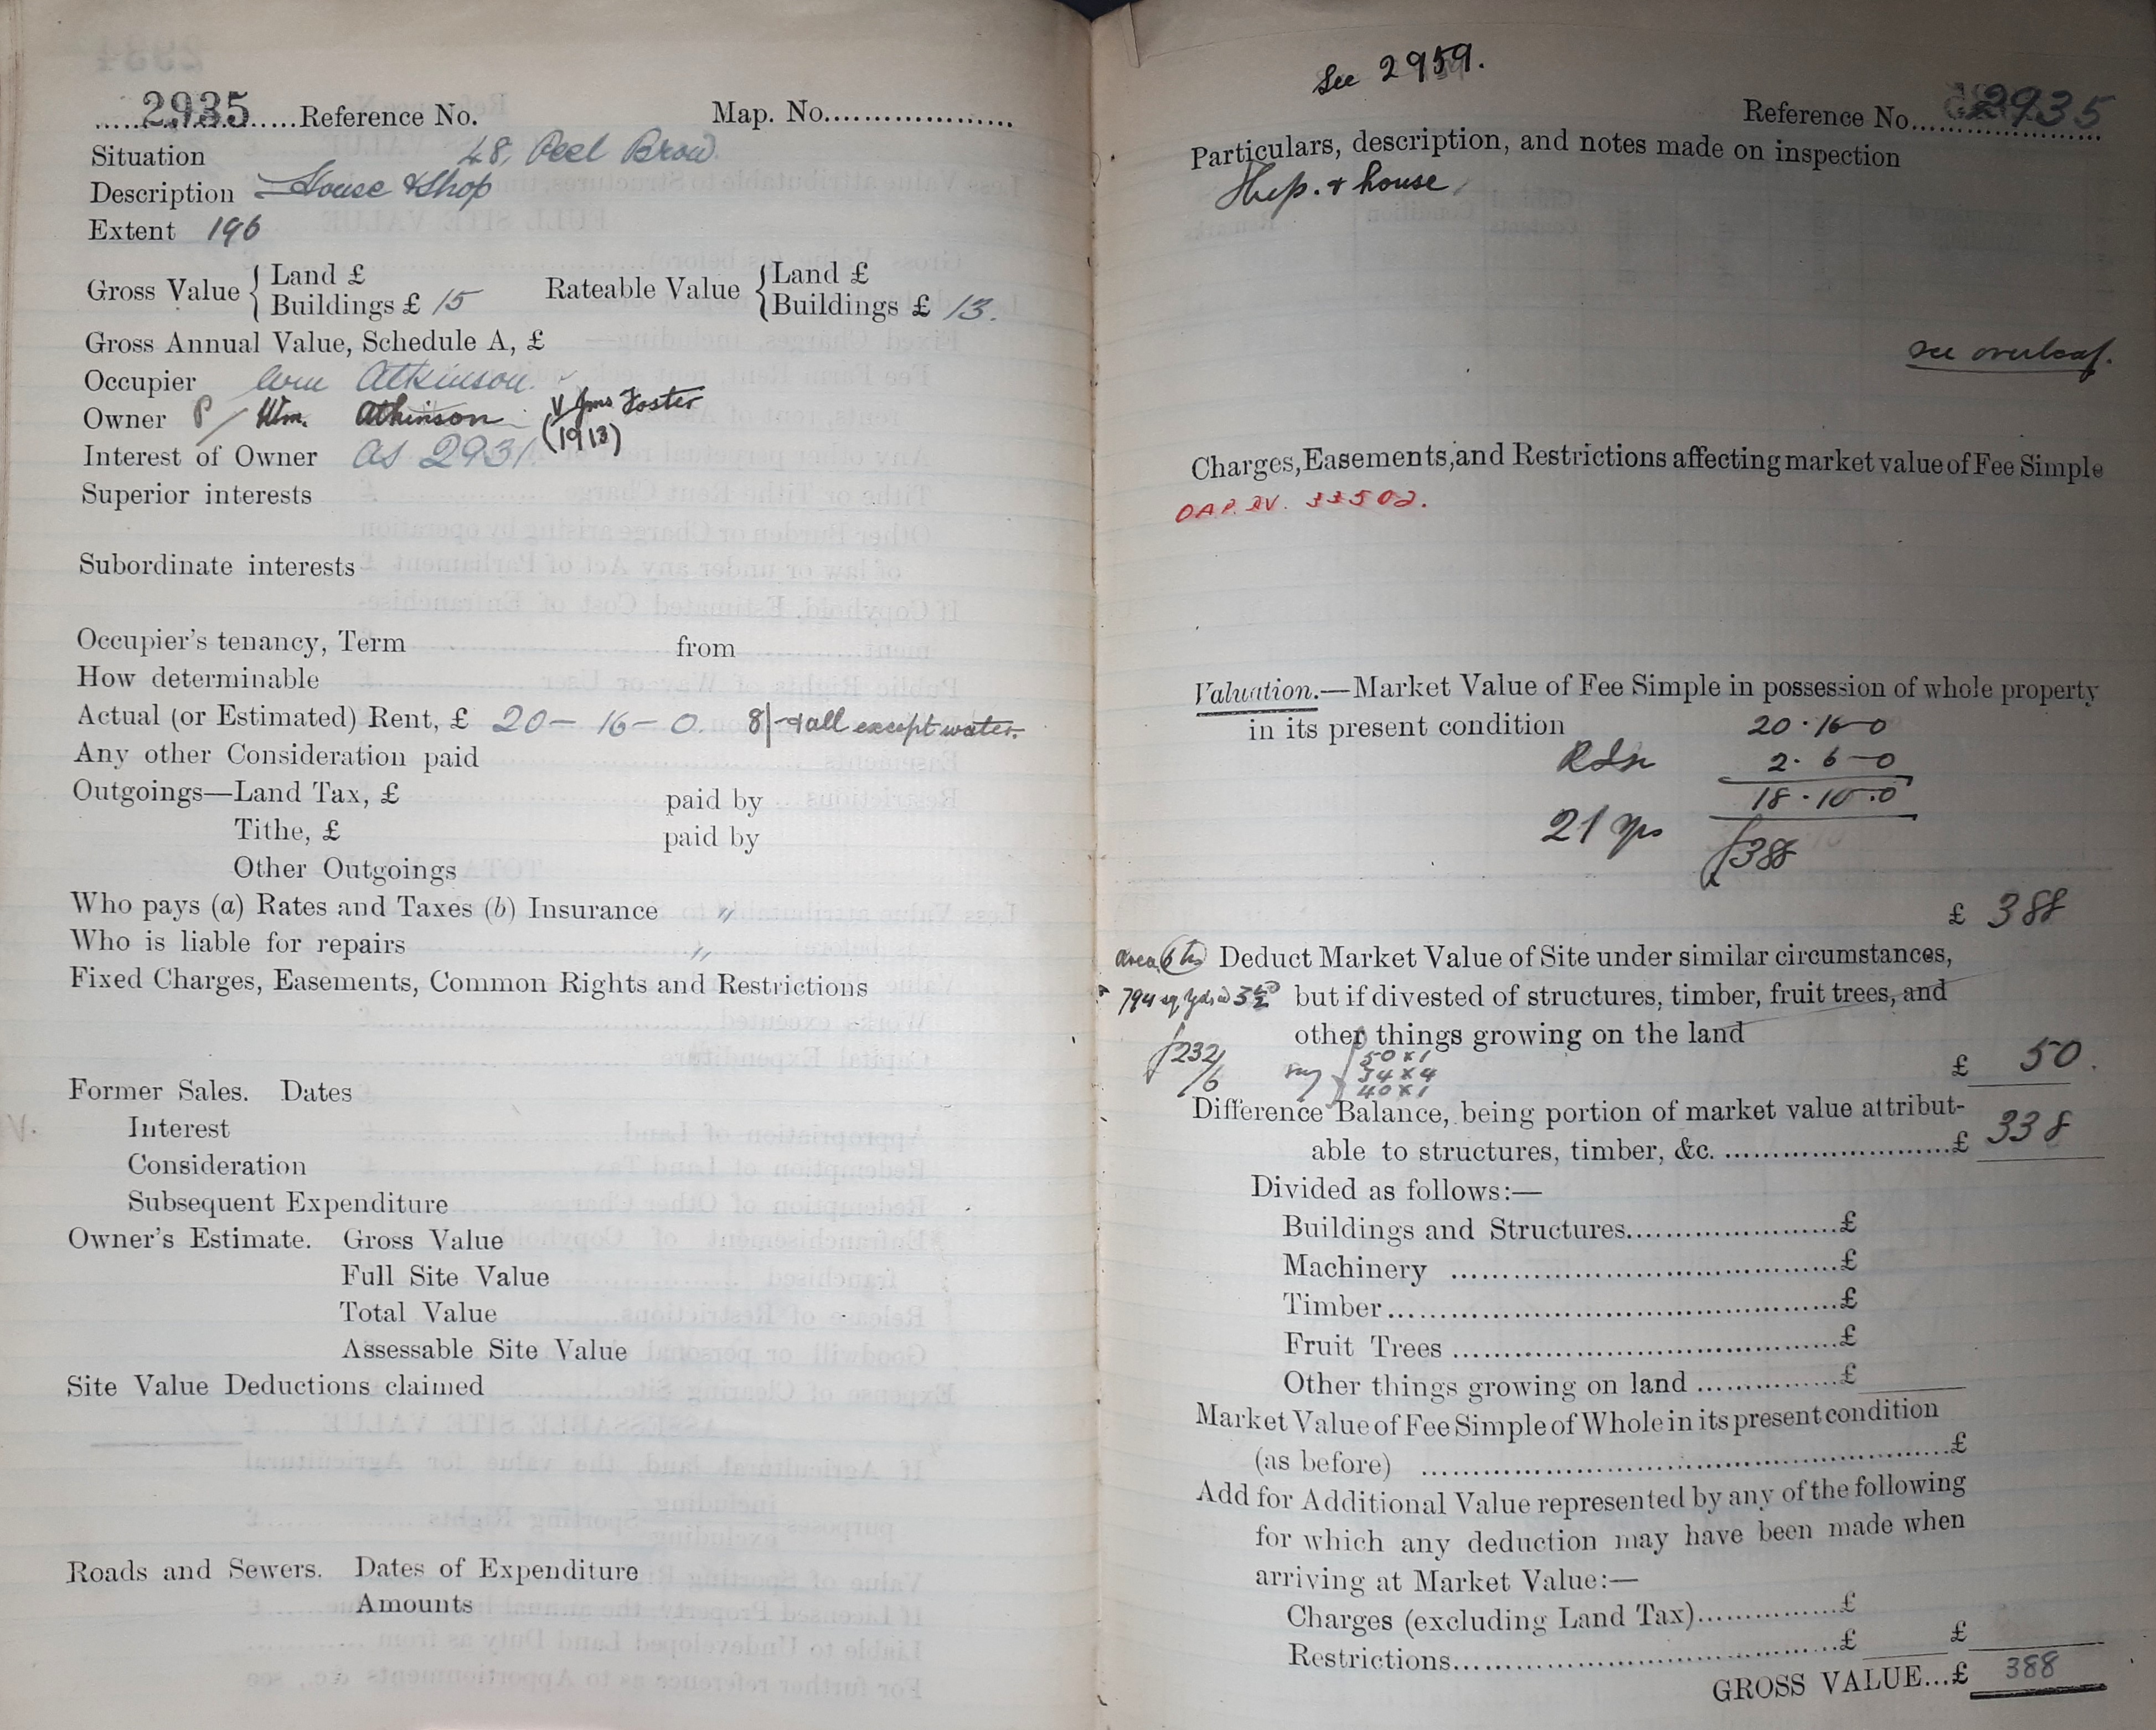 2935 Reference No. Map. No.
Situation 48, Peel Brow.
Description House & Shop
Extent 196
Gross Value { Land £ Rateable Value { Land £
Buildings £ 15 Buildings £ 13.
Gross Annual Value, Schedule A, £
Occupier Wm Atkinson
Owner P / Wm. Atkinson V Jms Foster
(1913)
Interest of Owner as 2931.
Superior interests
Subordinate interests
Occupier's tenancy, Term from
How determinable
Actual (or Estimated) Rent, £ 20 – 16 – 0. 8/- & all except water.
Any other Consideration paid
Outgoings—Land Tax, £ paid by
Tithe, £ paid by
Other Outgoings
Who pays (a) Rates and Taxes (b) Insurance "
Who is liable for repairs "
Fixed Charges, Easements, Common Rights and Restrictions
Former Sales. Dates
Interest
Consideration
Subsequent Expenditure
Owner's Estimate. Gross Value
Full Site Value
Total Value
Assessable Site Value
Site Value Deductions claimed
Roads and Sewers. Dates of Expenditure
Amounts
See 2959.
Reference No. 2935
Particulars, description, and notes made on inspection
Shop. & house
see overleaf.
Charges, Easements, and Restrictions affecting market value of Fee Simple
Valuation.—Market Value of Fee Simple in possession of whole property
in its present condition 20 . 16 – 0
2 . 6 – 0
18 . 10 . 0
21 yrs £388
£ 388
area Deduct Market Value of Site under similar circumstances,
794 sq yds @ but if divested of structures, timber, fruit trees, and
other things growing on the land
£232/6 say 50 x 1
34 x 4
40 x 1
£ 50.
Difference Balance, being portion of market value attribut-
able to structures, timber, &c. £ 338
Divided as follows:—
Buildings and Structures £
Machinery £
Timber £
Fruit Trees £
Other things growing on land £
Market Value of Fee Simple of Whole in its present condition
(as before) £
Add for Additional Value represented by any of the following
for which any deduction may have been made when
arriving at Market Value:—
Charges (excluding Land Tax) £
Restrictions £ £
GROSS VALUE... £ 388